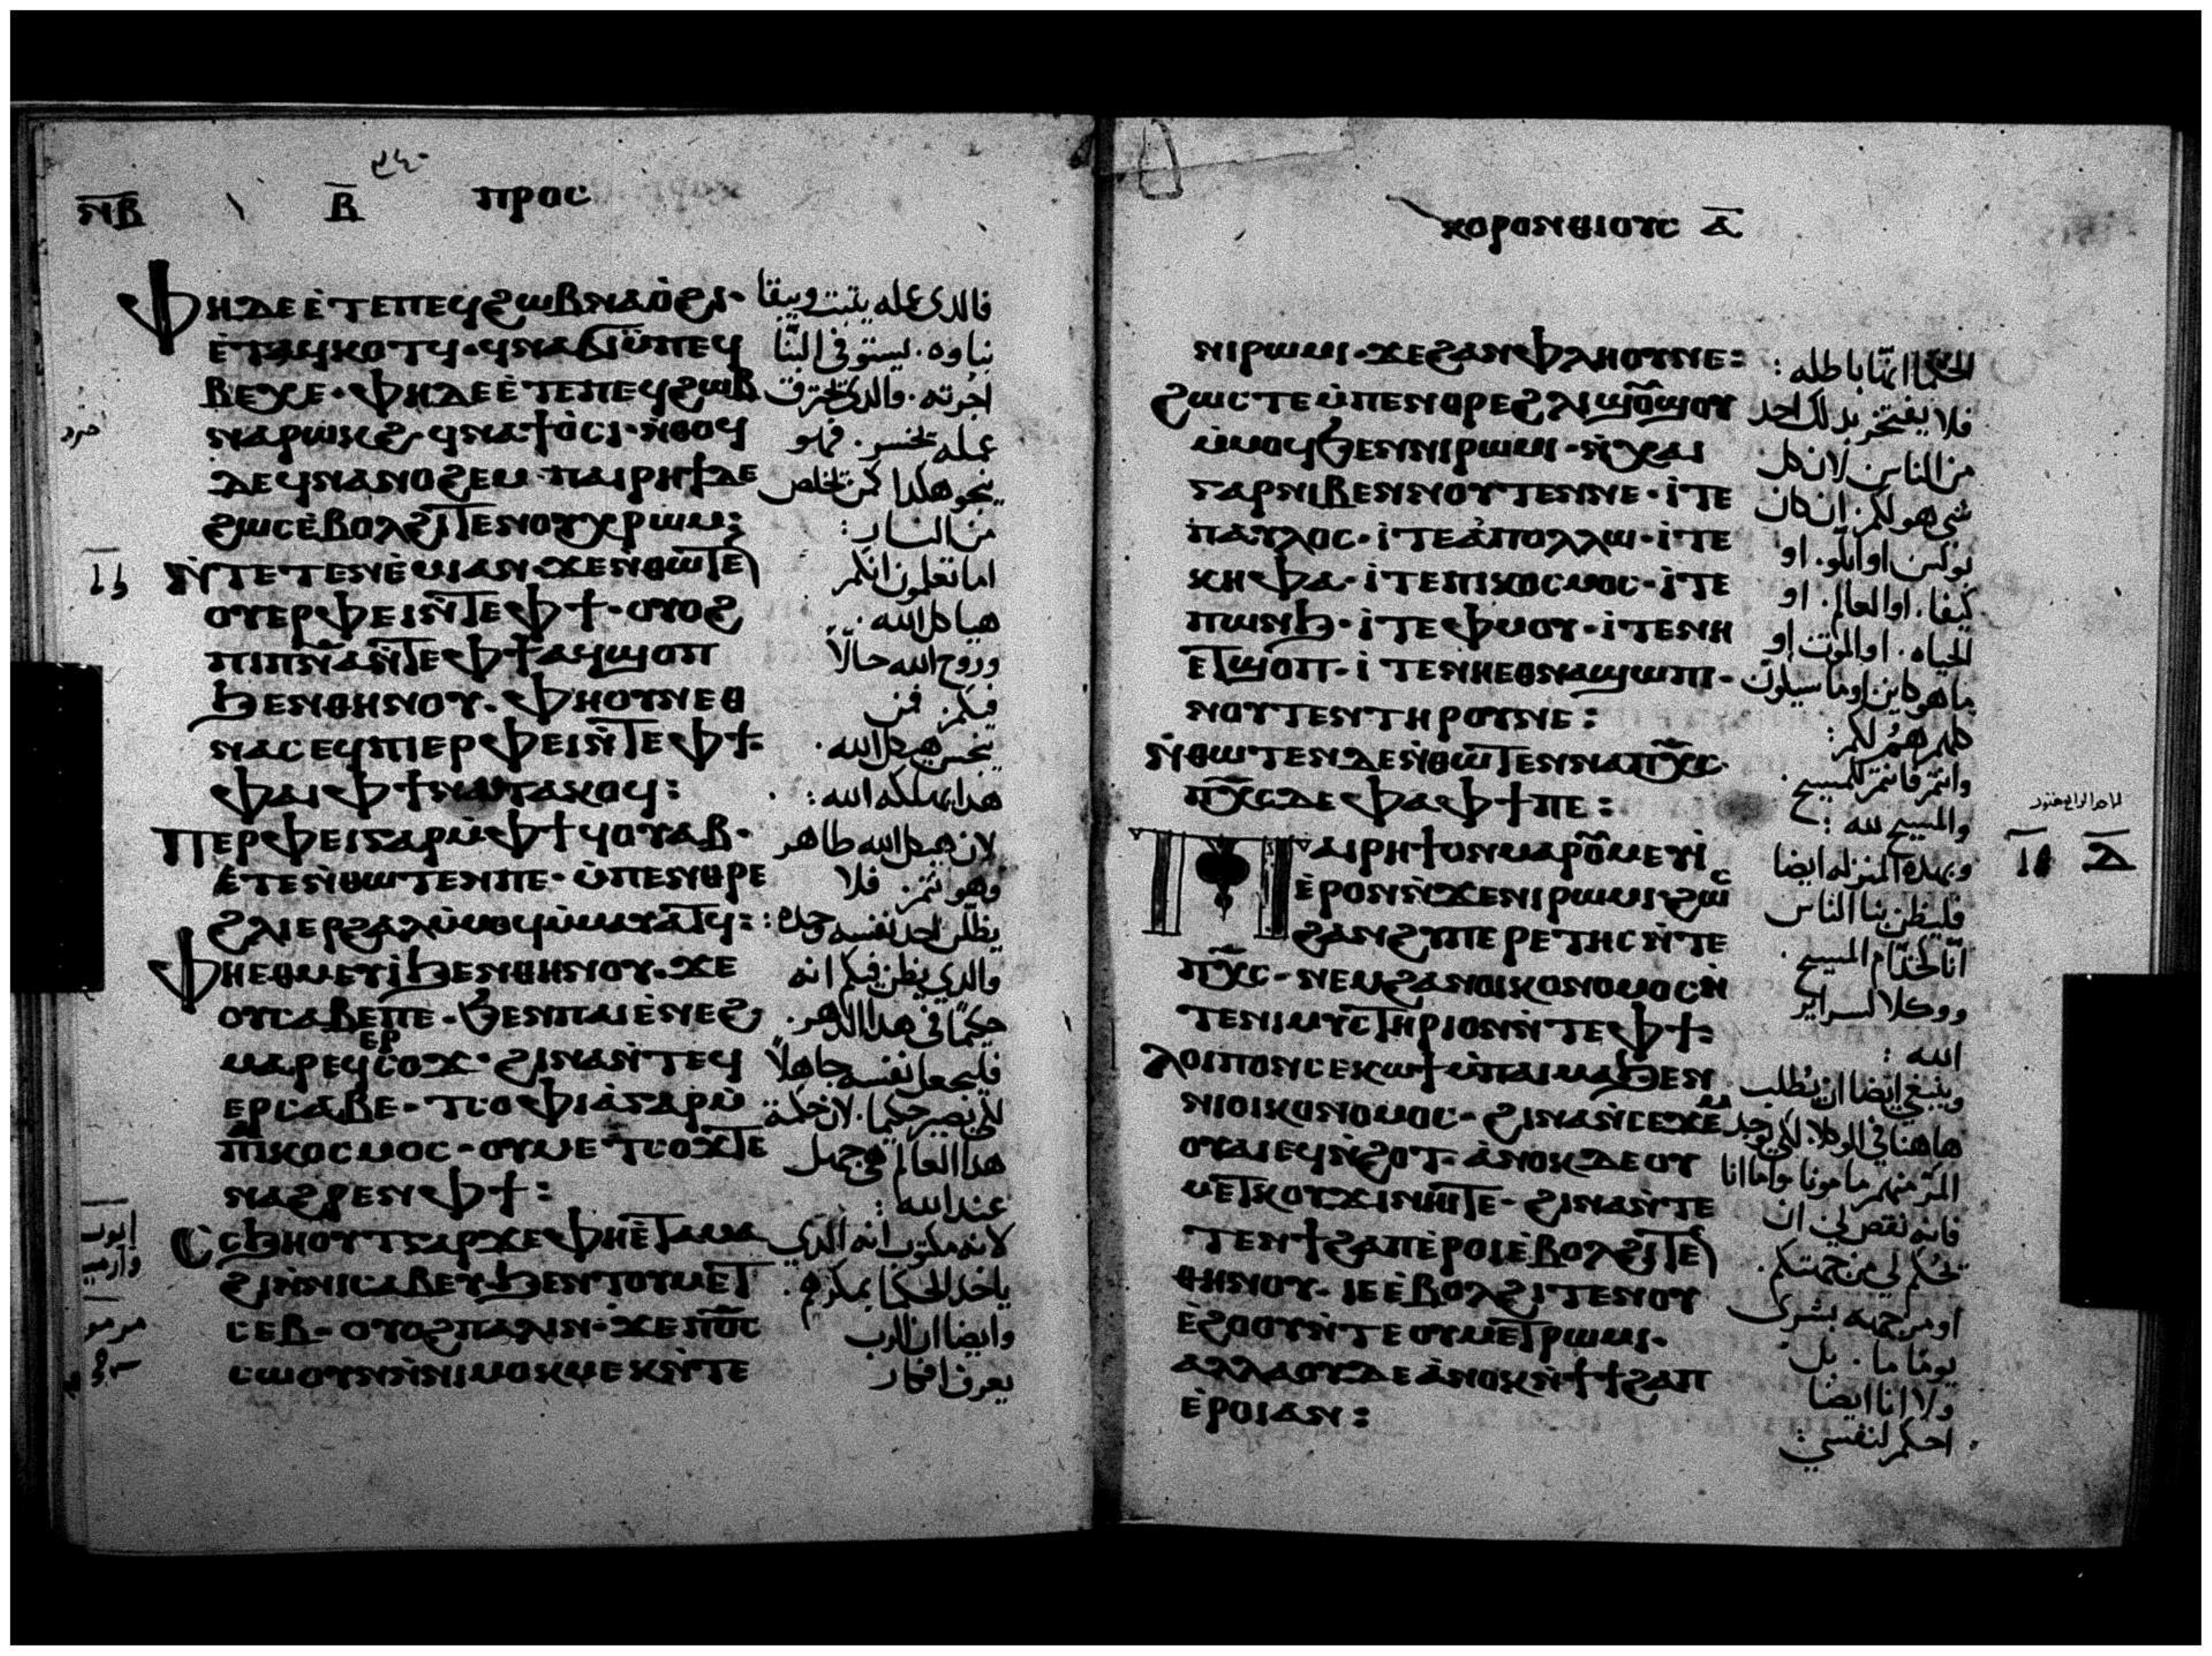 ⲛ̅ⲃ̅ ⲃ̅ ⲡⲣⲟⲥ
ⲫⲏⲇⲉⲉ̀ⲧⲉⲡⲉϥϩⲱⲃⲛⲁⲟ̀ϩⲓ· فالدى عمله يثبت ويبقا
ⲉ̀ⲧⲁϥⲕⲟⲧϥ·ϥⲛⲁϭⲓⲙ̀ⲡⲉϥ بناوه. يستوفى
ⲃⲉⲭⲉ·ⲫⲏⲇⲉⲉ̀ⲧⲉⲡⲉϥϩⲱⲃ اجرته. والدى يحترق
ⲛⲁⲣⲱⲕϩ·ϥⲛⲁϯⲟ̀ⲥⲓ·ⲛ̀ⲑⲟϥ عمله يخسر. فهو
ⲇⲉϥⲛⲁⲛⲟϩⲉⲙ·ⲡⲁⲓⲣⲏϯⲇⲉ ينجو هكدا كمن تخلص
ϩⲱⲥⲉ̀ⲃⲟⲗϩⲓⲧⲉⲛⲟⲩⲭⲣⲱⲙ: من النار:
ⲛ̀ⲧⲉⲧⲉⲛⲉ̀ⲙⲓⲁⲛ·ϫⲉⲛ̀ⲑⲱⲧⲉ اما تعلمون انكم
ⲟⲩⲉⲣⲫⲉⲓⲛ̀ⲧⲉⲫϯ·ⲟⲩⲟϩ هياكل الله.
ⲡⲓⲡⲛ̅ⲁ̅ⲛ̀ⲧⲉⲫϯⲁϥϣⲟⲡ وروح الله حالا
ϧⲉⲛⲑⲏⲛⲟⲩ·ⲫⲏⲟⲩⲛⲉⲑ فيكم. فمن
ⲛⲁⲥⲉϥⲡⲓⲉⲣⲫⲉⲓⲛ̀ⲧⲉⲫϯ: ينجس هيكل الله.
ⲫⲁⲓⲫϯⲛⲁⲧⲁⲕⲟϥ: هدا يهلكه الله:
ⲡⲉⲣⲫⲉⲓⲅⲁⲣⲙ̀ⲫϯϥⲟⲩⲁⲃ· لان هيكل الله طاهر
ⲉ̀ⲧⲉⲛ̀ⲑⲱⲧⲉⲛⲡⲉ·ⲙ̀ⲡⲉⲛⲑⲣⲉ وهو انتم. فلا
ϩⲗⲓⲉⲣϩⲁⲗⲙ̀ⲙⲟϥⲙ̀ⲙⲁⲩⲁⲧϥ: يظلن احد نفسه وحده:
ⲫⲏⲉⲑⲙⲉⲩⲓ̀ϧⲉⲛⲑⲏⲛⲟⲩ·ϫⲉ والدي يظن فيكم انه
ⲟⲩⲥⲁⲃⲉⲡⲉ·ϧⲉⲛⲡⲁⲓⲉ̀ⲛⲉϩ حكيما فى هدا الدهر.
ⲉⲣ
ⲙⲁⲣⲉϥⲥⲟϫ·ϩⲓⲛⲁⲛ̀ⲧⲉϥ فليجعل نفسه جاهلا
ⲉⲣⲥⲁⲃⲉ·ϯⲥⲟⲫⲓⲁ̀ⲅⲁⲣⲙ̀ لكى يصير حكيما. لان حكمة
ⲡⲓⲕⲟⲥⲙⲟⲥ·ⲟⲩⲙⲉⲧⲥⲟϫⲧⲉ هدا العالم هى جهل
ⲛⲁϩⲣⲉⲛⲫϯ: عند الله:
ⲥⲥϧⲏⲟⲩⲧⲅⲁⲣϫⲉⲫⲏⲉ̀ⲧⲁⲙⲁ لانه مكتوب انه الدى
ϩⲓⲛ̀ⲛⲓⲥⲁⲃⲉⲩϧⲉⲛⲧⲟⲩⲙⲉⲧ ياخد الحكما بمكرهم.
ⲥⲉⲃ·ⲟⲩⲟϩⲡⲁⲗⲓⲛ·ϫⲉⲡϭⲟⲓⲥ وايضا ان الرب
ⲥⲱⲟⲩⲛⲛ̀ⲛⲓⲙⲟⲕⲙⲉⲕⲛ̀ⲧⲉ يعرف افكار
ⲕⲟⲣⲟⲛⲑⲓⲟⲩⲥ ⲁ̅
ⲛⲓⲣⲱⲙⲓ·ϫⲉϩⲁⲛⲉⲫⲗⲏⲟⲩⲛⲉ: الحكما انها باطله:
ϩⲱⲥⲧⲉⲙ̀ⲡⲉⲛⲑⲣⲉϩⲗⲓϣⲟⲩϣⲟⲩ فلا يفتخر بدلك احد
ⲙ̀ⲙⲟϥϧⲉⲛⲛⲓⲣⲱⲙⲓ·ⲛ̀ⲭⲁⲓ من الناس لان كل
ⲅⲁⲣⲛⲓⲃⲉⲛⲛⲟⲩⲧⲉⲛⲛⲉ·ⲓ̀ⲧⲉ شى هو لكم. ان كان
ⲡⲁⲩⲗⲟⲥ·ⲓ̀ⲧⲉⲁ̀ⲡⲟⲗⲗⲱ·ⲓ̀ⲧⲉ بولس او ابلو. او
ⲕⲏⲫⲁ·ⲓ̀ⲧⲉⲡⲓⲕⲟⲥⲙⲟⲥ·ⲓ̀ⲧⲉ كيفا. او العالم. او
ⲡⲱⲛϧ·ⲓ̀ⲧⲉⲫⲙⲟⲩ·ⲓ̀ⲧⲉⲛⲏ الحياه. او الموت او
ⲉⲧϣⲟⲡ·ⲓ̀ⲧⲉⲛⲏⲉⲑⲛⲁϣⲱⲡⲓ· ما هو كاين او ما سيكون
ⲛⲟⲩⲧⲉⲛⲧⲏⲣⲟⲩⲛⲉ: كلهم هم لكم:
ⲛ̀ⲑⲱⲧⲉⲛⲇⲉⲛ̀ⲑⲱⲧⲉⲛⲛⲁⲡⲭ̅ⲥ· وانتم فانتم للمسيح.
ⲡⲭ̅ⲥⲇⲉⲫⲁⲫϯⲡⲉ: والمسيح لله:
ⲡⲁⲓⲣⲏϯⲟⲛⲙⲁⲣⲟⲩⲙⲉⲩⲓ̀ وبهده المنزله ايضا
ⲉ̀ⲣⲟⲛⲛ̀ϫⲉⲛⲓⲣⲱⲙⲓ·ϩⲱⲥ فليظن بنا الناس
ϩⲁⲛϩⲩⲡⲉⲣⲉⲧⲏⲥⲛ̀ⲧⲉ انا خدام المسيح.
ⲡⲭ̅ⲥ·ⲛⲉⲙϩⲁⲛⲟⲓⲕⲟⲛⲟⲙⲟⲥⲛ̀ ووكلا لسراير
ⲧⲉⲛⲓⲙⲩⲥⲧⲏⲣⲓⲟⲛⲛ̀ⲧⲉⲫϯ: الله:
ⲗⲟⲓⲡⲟⲛⲥⲉⲕⲱϯⲙ̀ⲡⲁⲓⲙⲁϧⲉⲛ وينبغي ايضا ان يطلب
ⲛⲓⲟⲓⲕⲟⲛⲟⲙⲟⲥ·ϩⲓⲛⲁⲛ̀ⲥⲉϫⲉⲙ هاهنا في الوكلا. لكى يوجد
ⲟⲩⲁⲓⲉϥⲛ̀ϩⲟⲧ·ⲁ̀ⲛⲟⲕⲇⲉⲟⲩ المرء منهم مامونا واما انا
ⲙⲉⲧⲕⲟⲩϫⲓⲛⲏⲓⲧⲉ·ϩⲓⲛⲁⲛ̀ⲧⲉ فانه نقص لي ان
ⲧⲉⲛϯϩⲁⲡⲉ̀ⲣⲟⲓⲉ̀ⲃⲟⲗϩⲓⲧⲉ يحكم لي من جهتكم.
ⲑⲏⲛⲟⲩ·ⲓⲉⲉ̀ⲃⲟⲗϩⲓⲧⲉⲛⲟⲩ او من جهه بشرى
ⲉ̀ϩⲟⲟⲩⲛ̀ⲧⲉⲟⲩⲙⲉⲧⲣⲱⲙⲓ· يوما ما. بل
ⲁⲗⲗⲁⲟⲩⲇⲉⲁ̀ⲛⲟⲕⲛ̀ϯϯϩⲁⲡ ولا انا ايضا
ⲉ̀ⲣⲟⲓⲁⲛ: احكم لنفسي: